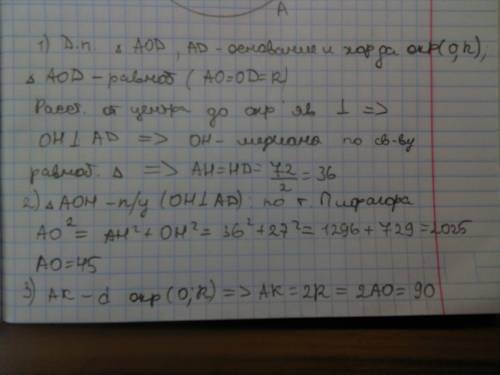 A
1) Д.п. △ AOD, AD - основание и хорда окр(O,R),
△ AOD - равноб (AO=OD=R)
Расст. от центра до окр яв ⊥ =>
OH ⊥ AD => OH - медиана по св-ву
равноб. △ => AH=HD= 72/2 = 36
2) △ AOH - п/у (OH⊥AD) по т. Пифагора
AO² = AH² + OH² = 36² + 27² = 1296 + 729 = 2025
AO=45
3) AK - d окр(O;R) => AK = 2R = 2AO = 90